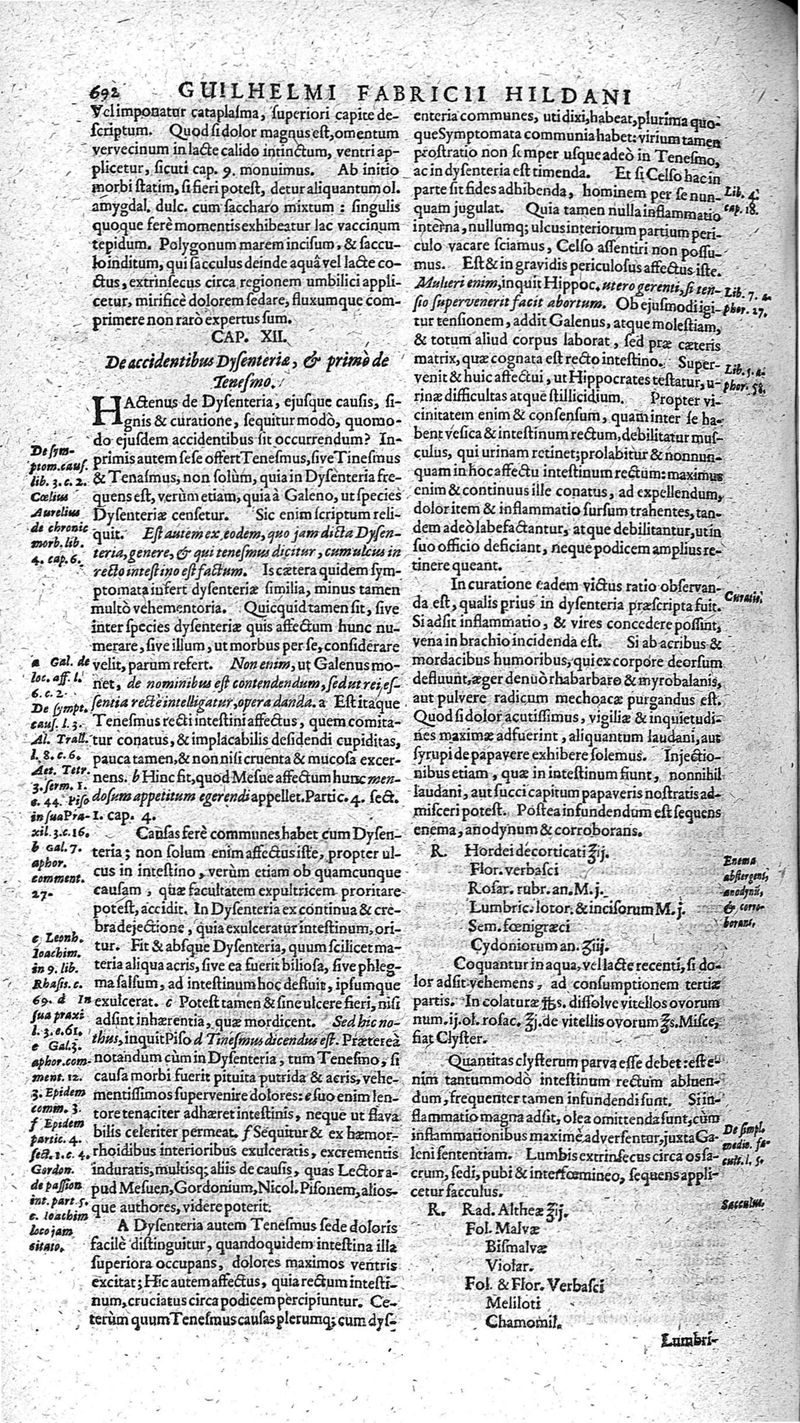 692 GUILHELMI FABRICII HILDANI
Vel imponatur cataplasma, superiori capite de-
scriptum. Quod si dolor magnus est, omentum
vervecinum in lacte calido intinctum, ventri ap-
plicetur, sicuti cap. 9. monuimus. Ab initio
morbi statim, si fieri potest, detur aliquantum ol.
amygdal. dulc. cum saccharo mixtum: singulis
quoque ferè momentis exhibeatur lac vaccinum
tepidum. Polygonum marem incisum, & saccu-
lo inditum, qui sacculus deinde aquâ vel lacte co-
ctus, extrinsecus circa regionem umbilici appli-
cetur, mirificè dolorem sedare, fluxumque com-
primere non rarò expertus sum.
CAP. XII.
De accidentibus Dysenteriæ, & primò de
Tenesmo.
HActenus de Dysenteria, ejusque causis, si-
gnis & curatione, sequitur modò, quomo-
do ejusdem accidentibus sit occurrendum? In-
primis autem sese offert Tenesmus, sive Tinesmus
& Tenasmus, non solùm, quia in Dysenteria fre-
quens est, verùm etiam, quia à Galeno, ut species
Dysenteriæ censetur. Sic enim scriptum reli-
quit. Est autem ex eodem, quo jam dicta Dysen-
teria, genere, & qui tenesmus dicitur, cum ulcus in
recto intestino est factum. Is cætera quidem sym-
ptomata infert dysenteriæ similia, minus tamen
multò vehementoria. Quicquid tamen sit, sive
inter species dysenteriæ quis affectum hunc nu-
merare, sive illum, ut morbus per se, considerare
velit, parum refert. Non enim, ut Galenus mo-
net, de nominibus est contendendum, sed ut rei es-
sentia rectè intelligatur, opera danda. a Est itaque
Tenesmus recti intestini affectus, quem comita-
tur conatus, & implacabilis desidendi cupiditas,
pauca tamen, & non nisi cruenta & mucosa excer-
nens. b Hinc fit, quod Mesue affectum hunc men-
dosum appetitum egerendi appellet. Partic. 4. sect.
1. cap. 4.
Causas ferè communes habet cum Dysen-
teria; non solum enim affectus iste, propter ul-
cus in intestino, verùm etiam ob quamcunque
causam, quæ facultatem expultricem proritare
potest, accidit. In Dysenteria ex continua & cre-
bra dejectione, quia exulceratur intestinum, ori-
tur. Fit & absque Dysenteria, quum scilicet ma-
teria aliqua acris, sive ea fuerit biliosa, sive phleg-
ma salsum, ad intestinum hoc destuit, ipsumque
exulcerat. c Potest tamen & sine ulcere fieri, nisi
adsint inhærentia, quæ mordicent. Sed hic no-
thus, inquit Piso d Tinesmus dicendus est. Præterea
notandum cùm in Dysenteria, tum Tenesmo, si
causa morbi fuerit pituita putrida & acris, vehe-
mentissimos supervenire dolores: e suo enim len-
tore tenaciter adhæret intestinis, neque ut flava
bilis celeriter permeat. f Sequitur & ex hæmor-
rhoidibus interioribus exulceratis, excrementis
induratis, multisq; aliis de causis, quas Lector a-
pud Mesuen, Gordonium, Nicol. Pisonem, alios-
que authores, videre poterit.
A Dysenteria autem Tenesmus sede doloris
facilè distinguitur, quandoquidem intestina illa
superiora occupans, dolores maximos ventris
excitat; Hic autem affectus, quia rectum intesti-
num, cruciatus circa podicem percipiuntur. Ce-
terùm quum Tenesmus causas plerumq; cum dys-
De sym-
ptom. caus.
lib. 3. c. 2.
Cœlius
Aurelius
de chronic
morb. lib.
4. cap. 6.
a Gal. de
loc. aff. l.
6. c. 2.
De sympt.
caus. l. 3.
Al. Trall.
l. 8. c. 6.
Aet. Tetr.
3. serm. 1.
c. 44. Piso
in sua Pra-
xil. 3. c. 16.
b Gal. 7.
aphor.
comment.
27.
c Leonh.
Joachim.
in 9. lib.
Rhasis. c.
69. d In
sua praxi
l. 3. c. 61.
e Gal. 3.
aphor. com-
ment. 12.
3. Epidem
comm. 3.
f Epidem
partic. 4.
sect. 1. c. 4.
Gordon.
de passion
int. part. 5.
c. Ioachim
loco jam
citato.
enteria communes, uti dixi, habeat, plurima quo-
que Symptomata communia habet: virium tamen
prostratio non semper usque adeò in Tenesmo,
ac in dysenteria est timenda. Et si Celso hac in
parte sit fides adhibenda, hominem per se nun-
quam jugulat. Quia tamen nulla inflammatio
interna, nullumq; ulcus interiorum partium peri-
culo vacare sciamus, Celso assentiri non possu-
mus. Est & in gravidis periculosus affectus iste.
Mulieri enim, inquit Hippoc. utero gerenti, si ten-
sio supervenerit facit abortum. Ob ejusmodi igi-
tur tensionem, addit Galenus, atque molestiam,
& totum aliud corpus laborat, sed præ cæteris
matrix, quæ cognata est recto intestino. Super-
venit & huic affectui, ut Hippocrates testatur, u-
rinæ difficultas atque stillicidium. Propter vi-
cinitatem enim & consensum, quam inter se ha-
bent vesica & intestinum rectum, debilitatur mus-
culus, qui urinam retinet; prolabitur & nonnun-
quam in hoc affectu intestinum rectum: maximus
enim & continuus ille conatus, ad expellendum,
dolor item & inflammatio sursum trahentes, tan-
dem adeò labefactantur, atque debilitantur, ut in
suo officio deficiant, neque podicem amplius re-
tinere queant.
In curatione eadem victus ratio observan-
da est, qualis prius in dysenteria præscripta fuit.
Si adsit inflammatio, & vires concedere possint,
vena in brachio incidenda est. Si ab acribus &
mordacibus humoribus, qui ex corpore deorsum
defluunt, æger denuò rhabarbaro & myrobalanis,
aut pulvere radicum mechoacæ purgandus est.
Quod si dolor acutissimus, vigiliæ & inquietudi-
nes maximæ adfuerint, aliquantum laudani, aut
syrupi de papavere exhibere solemus. Injectio-
nibus etiam, quæ in intestinum fiunt, nonnihil
laudani, aut succi capitum papaveris nostratis ad-
misceri potest. Postea infundendum est sequens
enema, anodynum & corroborans.
R. Hordei decorticati ℥ij.
Flor. verbasci
Rosar. rubr. an. M. j.
Lumbric. lotor. & incisorum M. j.
Sem. fœnigræci
Cydoniorum an. ʒiij.
Coquantur in aqua, vel lacte recenti, si do-
lor adsit vehemens, ad consumptionem tertiæ
partis. In colaturæ ℔s. dissolve vitellos ovorum
num. ij. ol. rosac. ℥j. de vitellis ovorum ℥s. Misce,
fiat Clyster.
Quantitas clysterum parva esse debet: est e-
nim tantummodò intestinum rectum abluen-
dum, frequenter tamen infundendi sunt. Si in-
flammatio magna adsit, olea omittenda sunt, cùm
inflammationibus maximè adversentur, juxta Ga-
leni sententiam. Lumbis extrinsecus circa os sa-
crum, sedi, pubi & interfœmineo, sequens appli-
cetur sacculus.
R. Rad. Altheæ ℥ij.
Fol. Malvæ
Bismalvæ
Violar.
Fol. & Flor. Verbasci
Meliloti
Chamomil.
Lumbri-
Lib. 4.
cap. 18.
Lib. 7. a-
phor. 27.
Lib. 5. a-
phor. 58.
Curatio.
Enema
abstergens,
anodynū,
& corro-
borans.
De simpl.
medic. fa-
cult. l. 5.
Sacculus.